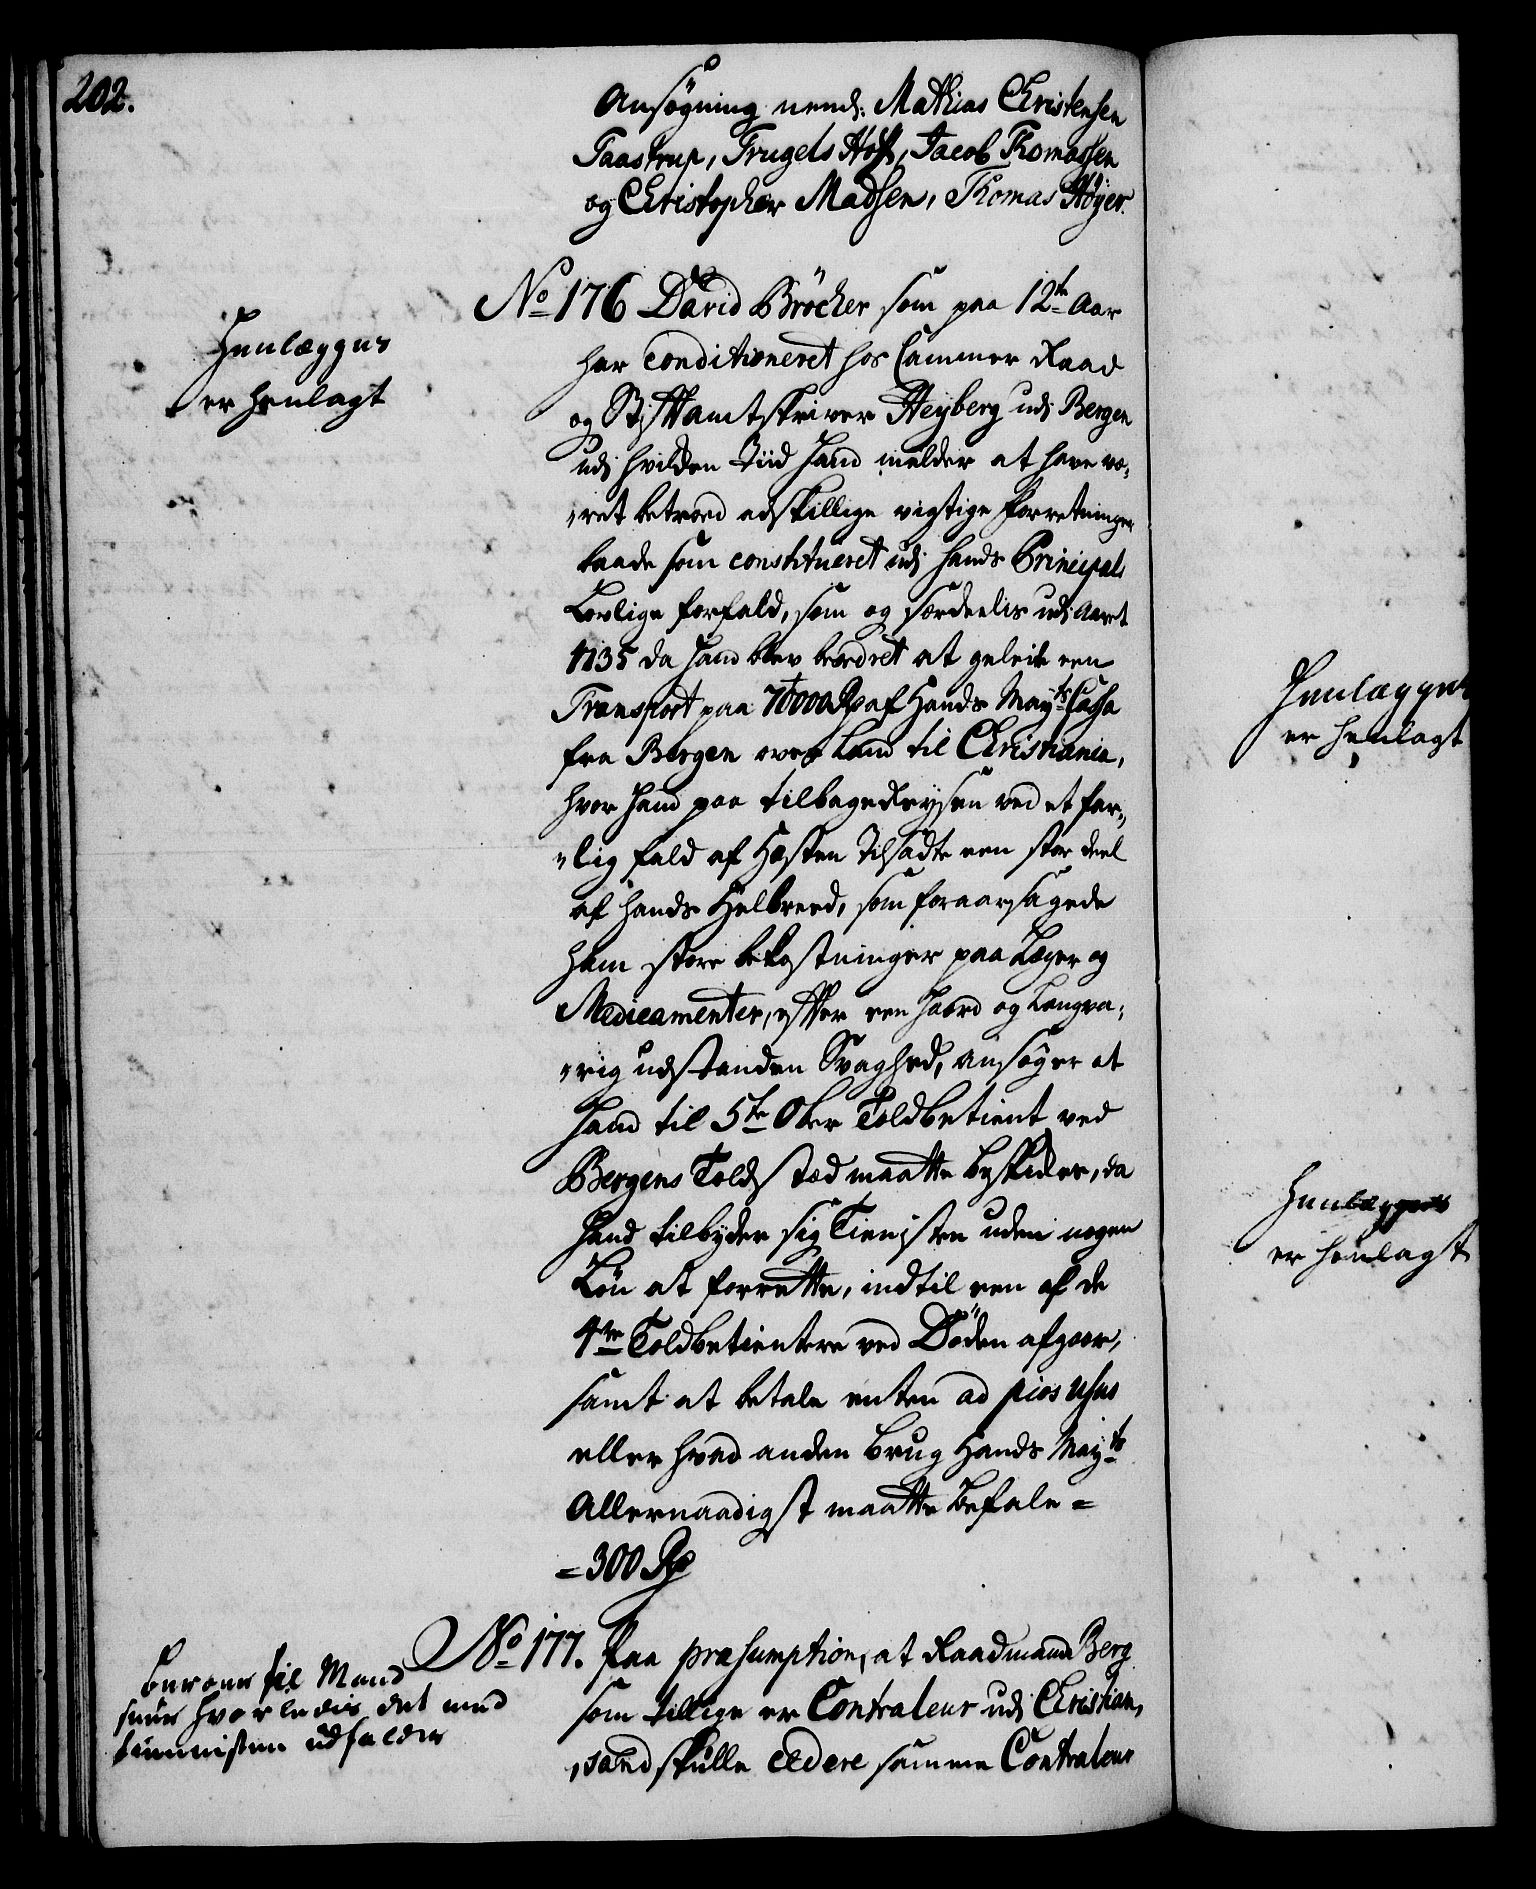 202.
Ansøgning nemd: Mathias Christensen
Taastrup, Trugels Høst, Jacob Thomassen
og Christopher Madsen, Thomas Høyer.
No 176 David Bröcher som paa 12te Aar
har Conditioneret hos Cammer Raad
og Stiftamtskriver Heyberg udj Bergen
udj hvilken Tiid Hand melder at have væ,
,ret betroed adskillige vigtige Forretninger
baade som constitueret udj hands Principals
Lovlige forfald, som og særdeelis udj Aaret
1735 da Hand blev beordret at geleide een
Transport paa 70000 Rd af Hands Mayts Cassa
fra Bergen over Land til Christiania,
hvor Hand paa tilbagereysen ved et far,,
,,lig fald af Hæsten Tilsadte een stor deel
af hands Helbreed, som foraarsagede
ham store bekostninger paa Læger og
Medicamenter, efter een haard og Langva,
,rig udstanden Svaghed, ansøger at
Hand til 5te Ober Toldbetient ved
Bergens Toldsted maatte beskikes, da
Hand tilbyder sig Tienisten uden nogen
Løn at forrette, indtil een af de
4re Toldbetientere ved Døden afgaar,
samt at betale enten ad pios usus
eller hvad anden brug Hands Mayts
Allernaadigst maatte befale =
= 300 Rd
No 177. Paa præsumption, at Raadmand Berg
som tillige er Contraleur udj Christian,
,sand skulle cedere samme Contraleur
Henlægges
er henlagt
beroer til Mand
seer hvorledis det med
tiennisten udfalder
Henlægges
er henlagt
Henlægges
er henlagt